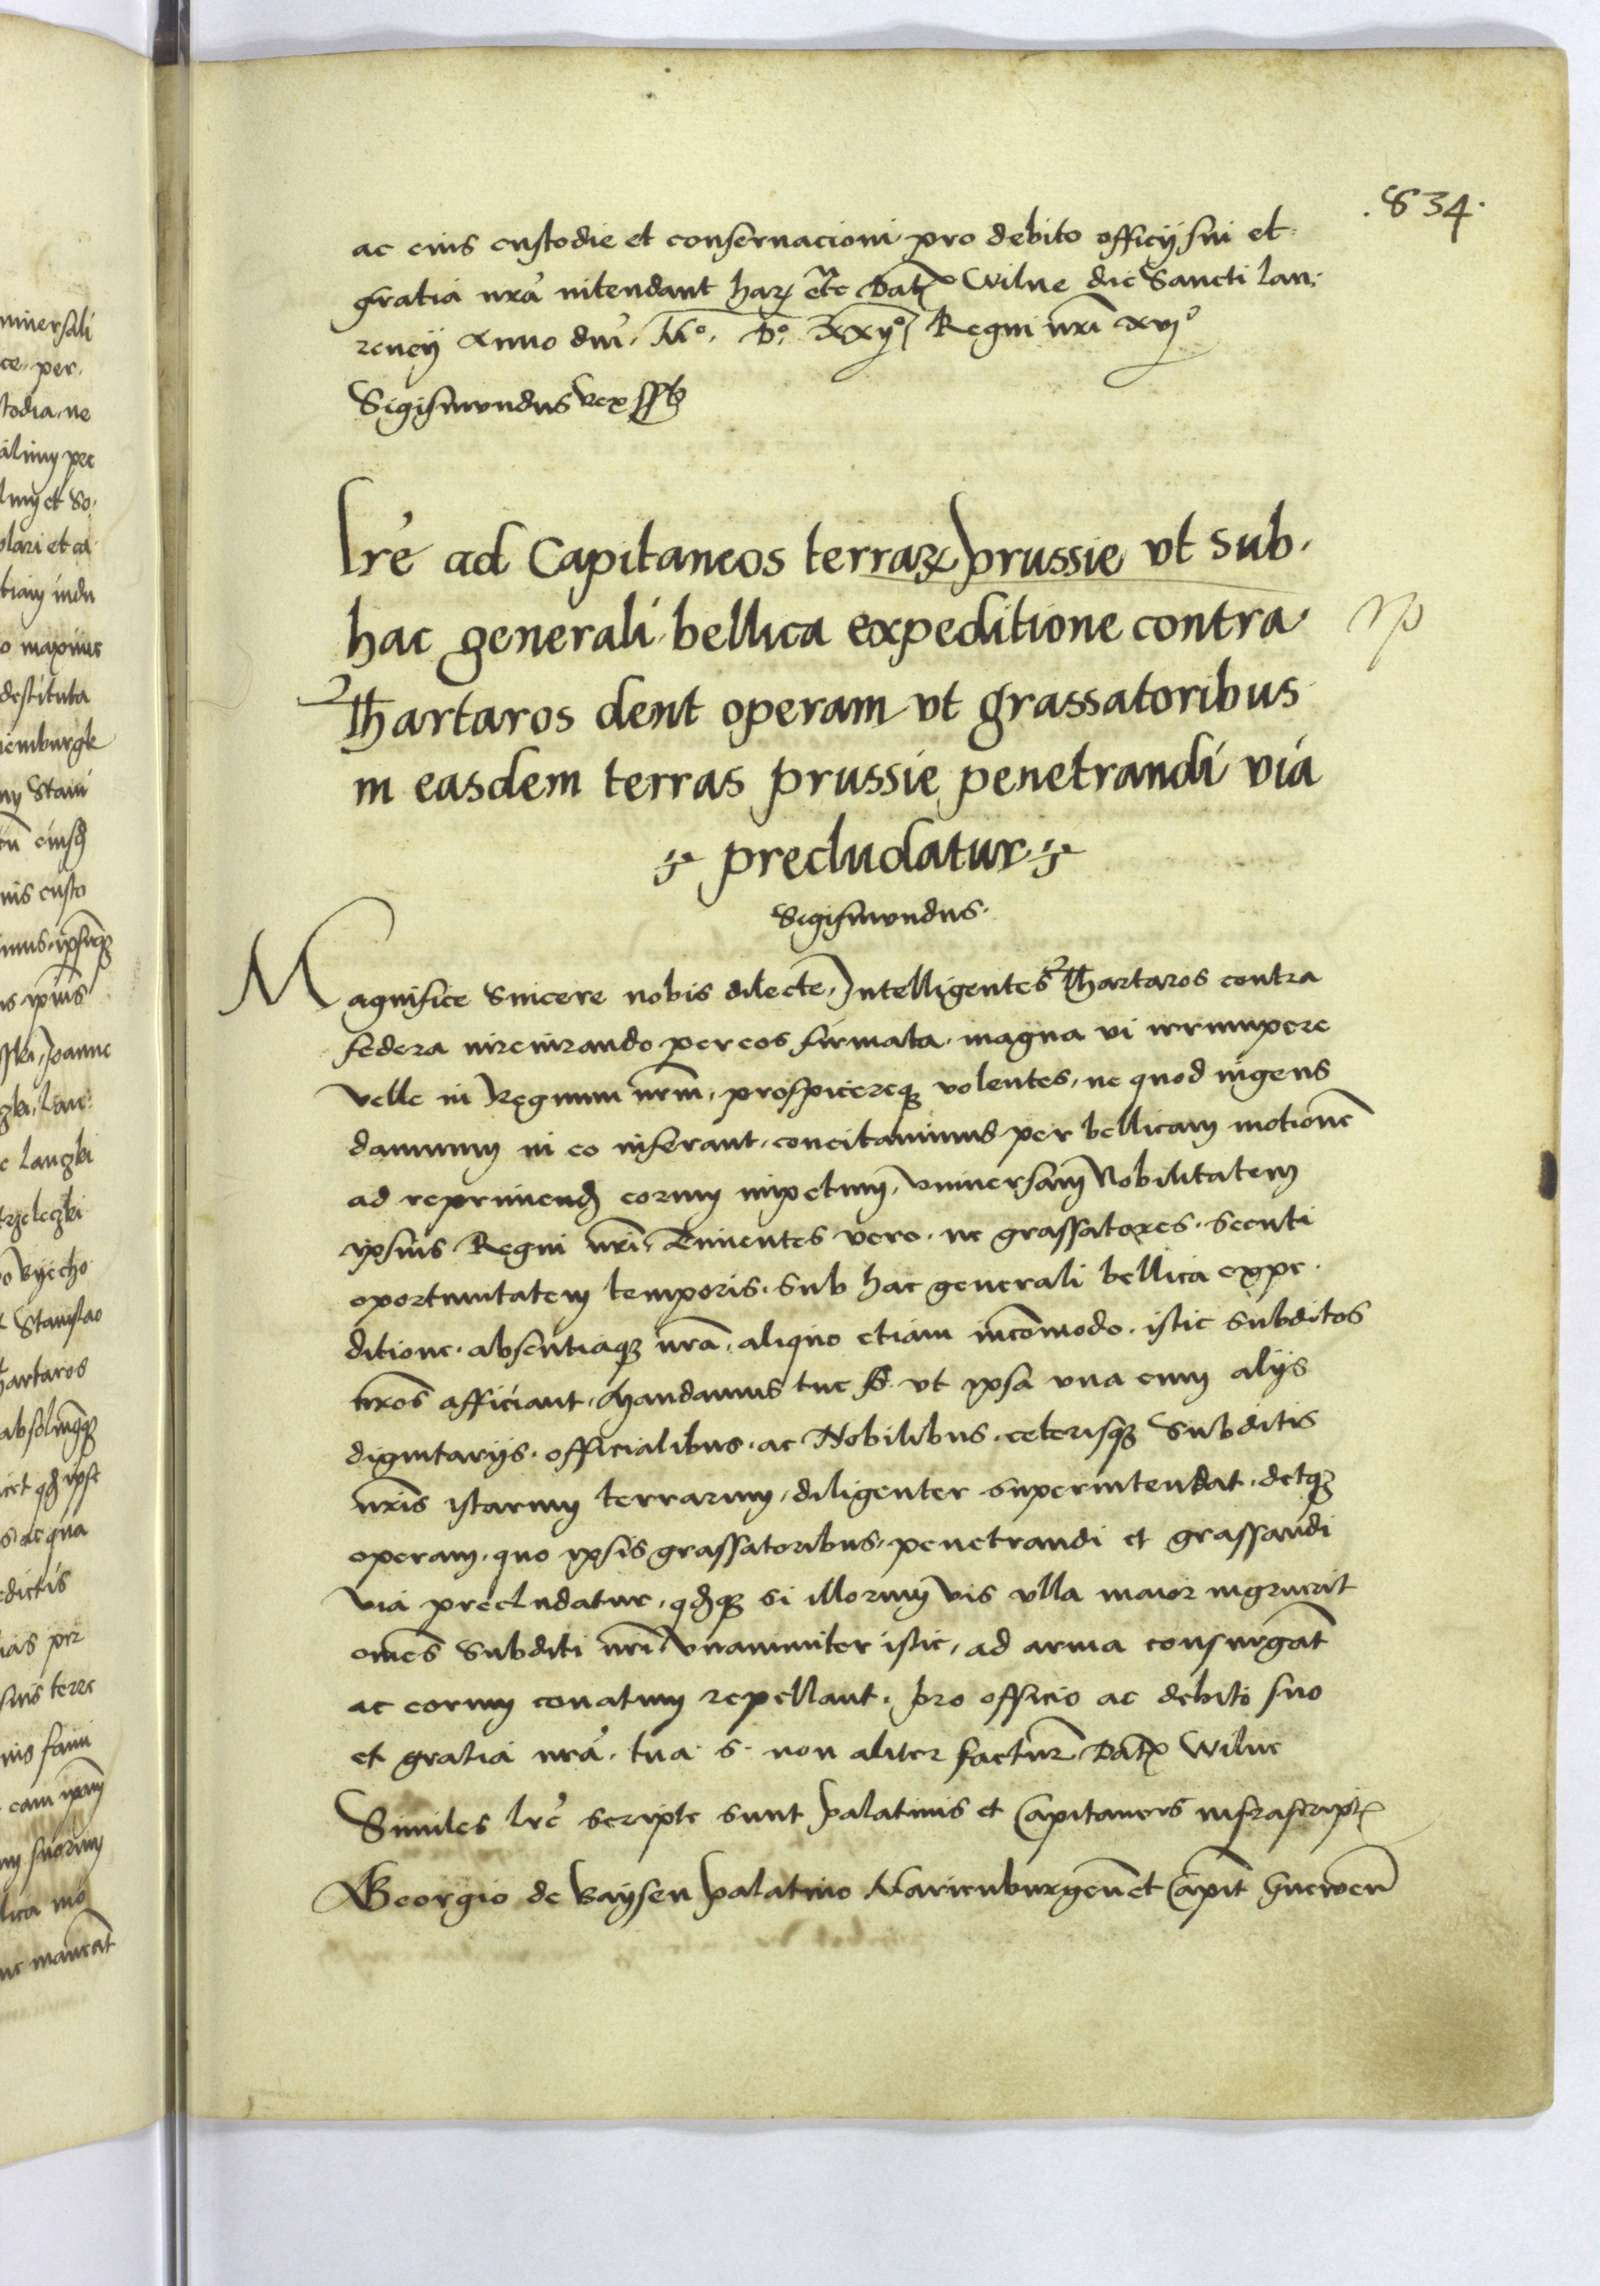 .834.
ac eius custodie et conseruacioni pro debito officij sui et
gratia nr̃a intendant harũ etc̃ Dat̃ Wilne die Sancti Lau:
rencij Anno dnĩ. Mº. Dº. XXijº Regni nr̃i xvjº
Sigismundus rex sst̃
Lrẽ ad Capitaneos terraꝝ prussie vt sub
hac generali bellica expeditione contra
Thartaros dent operam vt grassatoribus
in easdem terras prussie penetrandi via
precludatur
Sigismundus.
Magnifice sincere nobis dilecte, Intelligentes Thartaros contra
federa iureiurando per eos firmata, magna vi irrumpere
velle in Regnum nrm̃, prospicereqꝫ volentes, ne quod ingens
damnum in eo inferant, concitauimus per bellicam motionẽ
ad reprimendũ eorum impetum, vniuersam Nobilitatem
ipsius Regni nr̃i, Timentes vero, ne grassatores, secuti
oportunitatem temporis, sub hac generali bellica expe
ditione, absentiaqꝫ nr̃a, aliquo etiam incom̃odo, istic subditos
nr̃os afficiant, Mandamus tue S. vt ipsa vna cum alijs
dignitarijs, officialibus, ac Nobilibus, ceterisqꝫ Subditis
nr̃is istarum terrarum, diligenter superintendat, detqꝫ
operam, quo ipsis grassatoribus, penetrandi et grassandi
via precludatur, qd̃qꝫ si illorum vis vlla maior ingruerit
om̃es Subditi nr̃i vnanimiter istic, ad arma consurgãt
ac eorum conatum repellant, pro officio ac debito suo
et gratia nr̃a, tua S. non aliter factur̃ Dat̃ Wilne
Similes lr̃e scripte sunt palatinis et Capitaneis infrascript̃
Georgio de Baysen palatino Marienburgeñ et Capit̃ Gneweñ